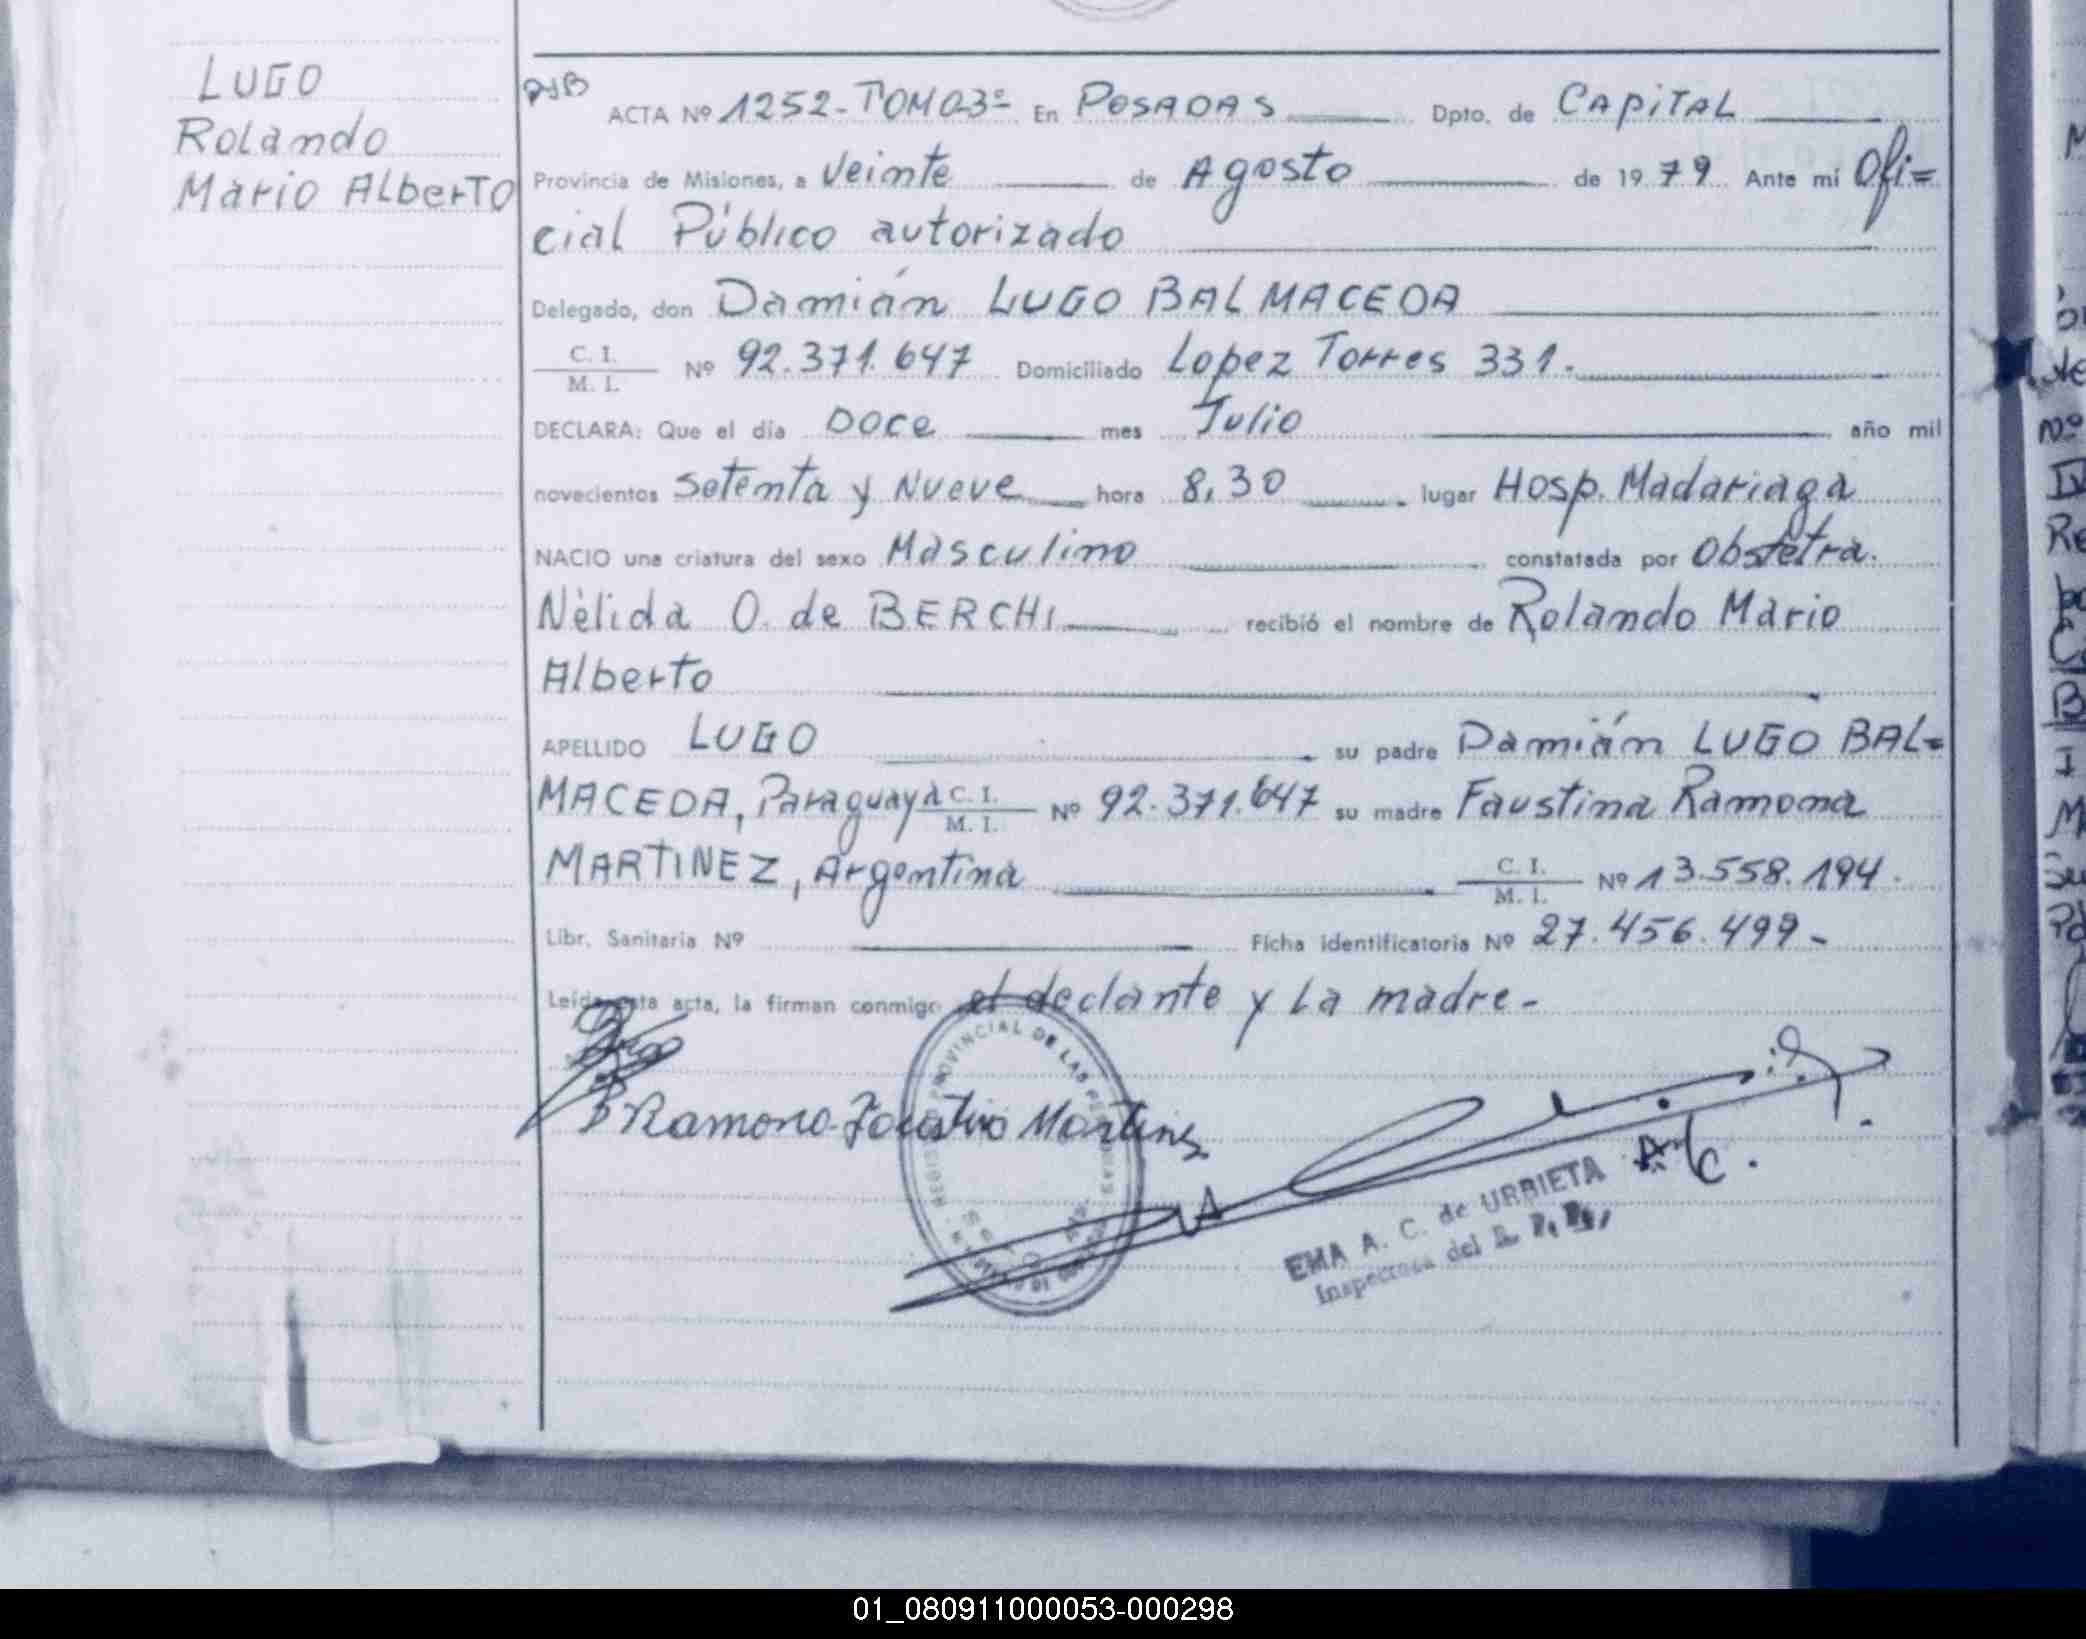 LUGO
Rolando
Mario Alberto
ACTA Nº 1252-TOMO 3º En POSADAS Dpto. de CAPITAL
Provincia de Misiones, a Veinte de Agosto de 1979 Ante mi Ofi=
cial Público autorizado
Delegado, don Damián LUGO BALMACEDA
C. I.
M. I. Nº 92.371.647 Domiciliado Lopez Torres 331.
DECLARA: Que el día DOCE mes Julio año mil
novecientos Setenta y Nueve hora 8,30 lugar Hosp. Madariaga
NACIO una criatura del sexo Masculino constatada por Obstétra.
Nèlida O. de BERCHI recibió el nombre de Rolando Mario
Alberto
APELLIDO LUGO su padre Damián LUGO BAL=
MACEDA, Paraguaya C. I. M. I. Nº 92.371.647 su madre Faustina Ramona
MARTINEZ, Argentina C. I. M. I. Nº 13.558.194.
Libr. Sanitaria Nº Ficha identificatoria Nº 27.456.499-
Leída esta acta, la firman conmigo el declante y La madre-
Ramona Faustina Martines
REGISTRO PROVINCIAL DE LAS PERSONAS
EMA A. C. de URBIETA
Inspectora del
01_080911000053-000298